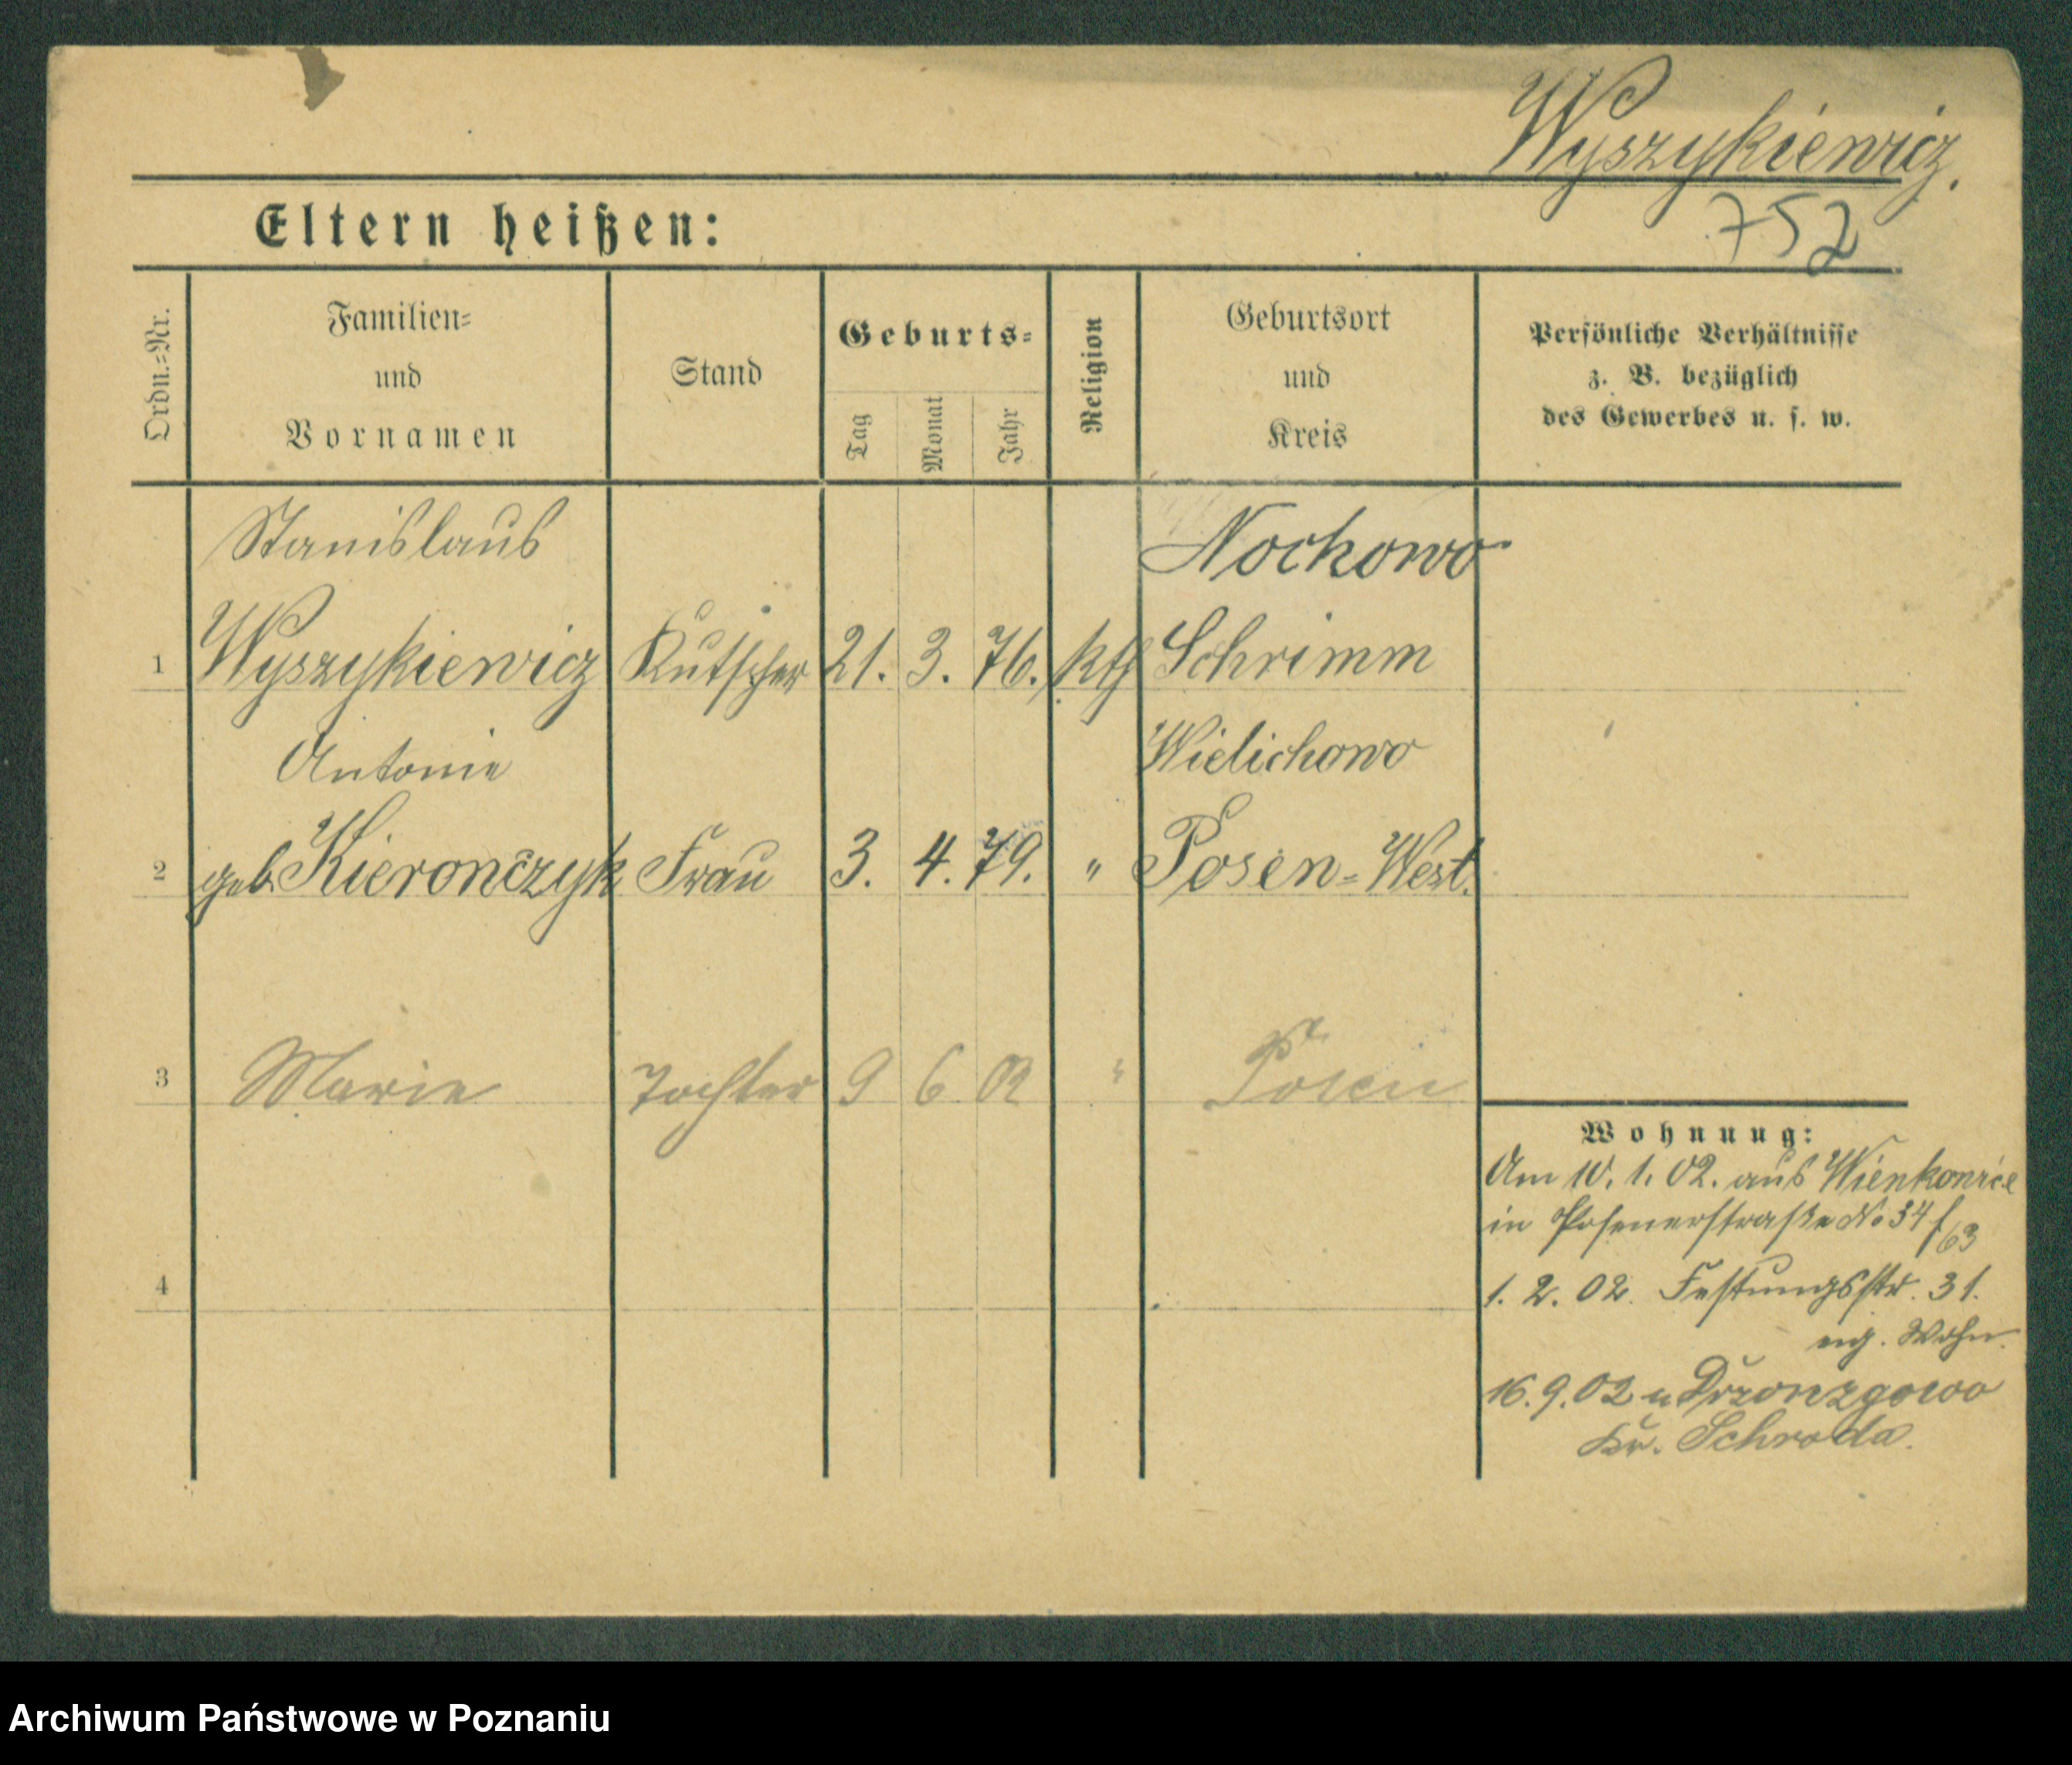 Wyszykiewicz.
752
Eltern heißen:
Ordn.=Nr.
Familien=
und
Vornamen
Stand
Geburts=
Tag
Monat
Jahr
Religion
Geburtsort
und
Kreis
Persönliche Verhältnisse
z. B. bezüglich
des Gewerbes u. s. w.
Stanislaus Nochowo
1 Wyszykiewicz Kutscher 21. 3. 76. kth Schrimm
Antonie Wielichowo
2 geb. Kierończyk Frau 3. 4. 79. " Posen=West.
3 Marie Tochter 9 6 02 " Posen
Wohnung:
Am 10. 1. 02. aus
in Posenerstraße No 34 f
63
4
1. 2. 02. Festungsstr. 31.
eig. Wohn.
16.9.02 n Drzonzgowo
Kr. Schroda.
Archiwum Państwowe w Poznaniu